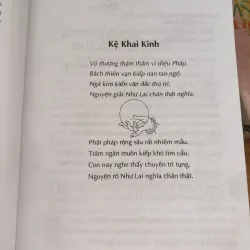 Kệ Khai Kinh
Vô thượng thậm thâm vi diệu Pháp,
Bách thiên vạn kiếp nan tao ngộ;
Ngã kim kiến văn đắc thọ trì,
Nguyện giải Như Lai chân thật nghĩa.
Phật pháp rộng sâu rất nhiệm mầu.
Trăm ngàn muôn kiếp khó tìm cầu,
Con nay nghe thấy chuyên trì tụng,
Nguyện rõ Như Lai nghĩa chân thật.